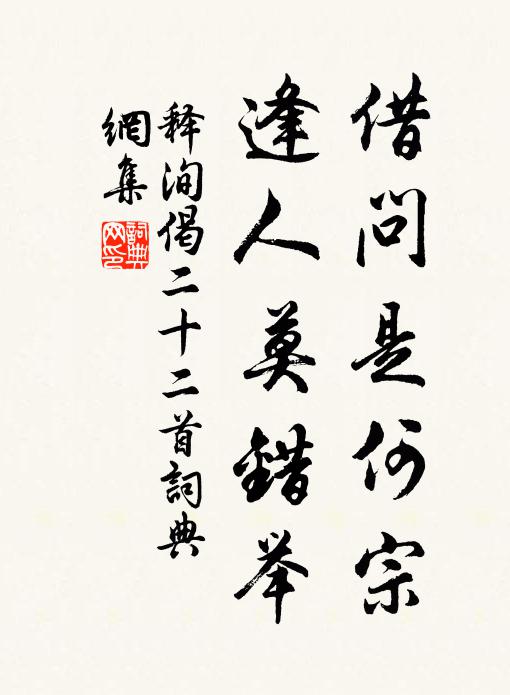 借问是何宗
逢人莫錯举
释洵偈二十二首詞典
網集
詞典
网印